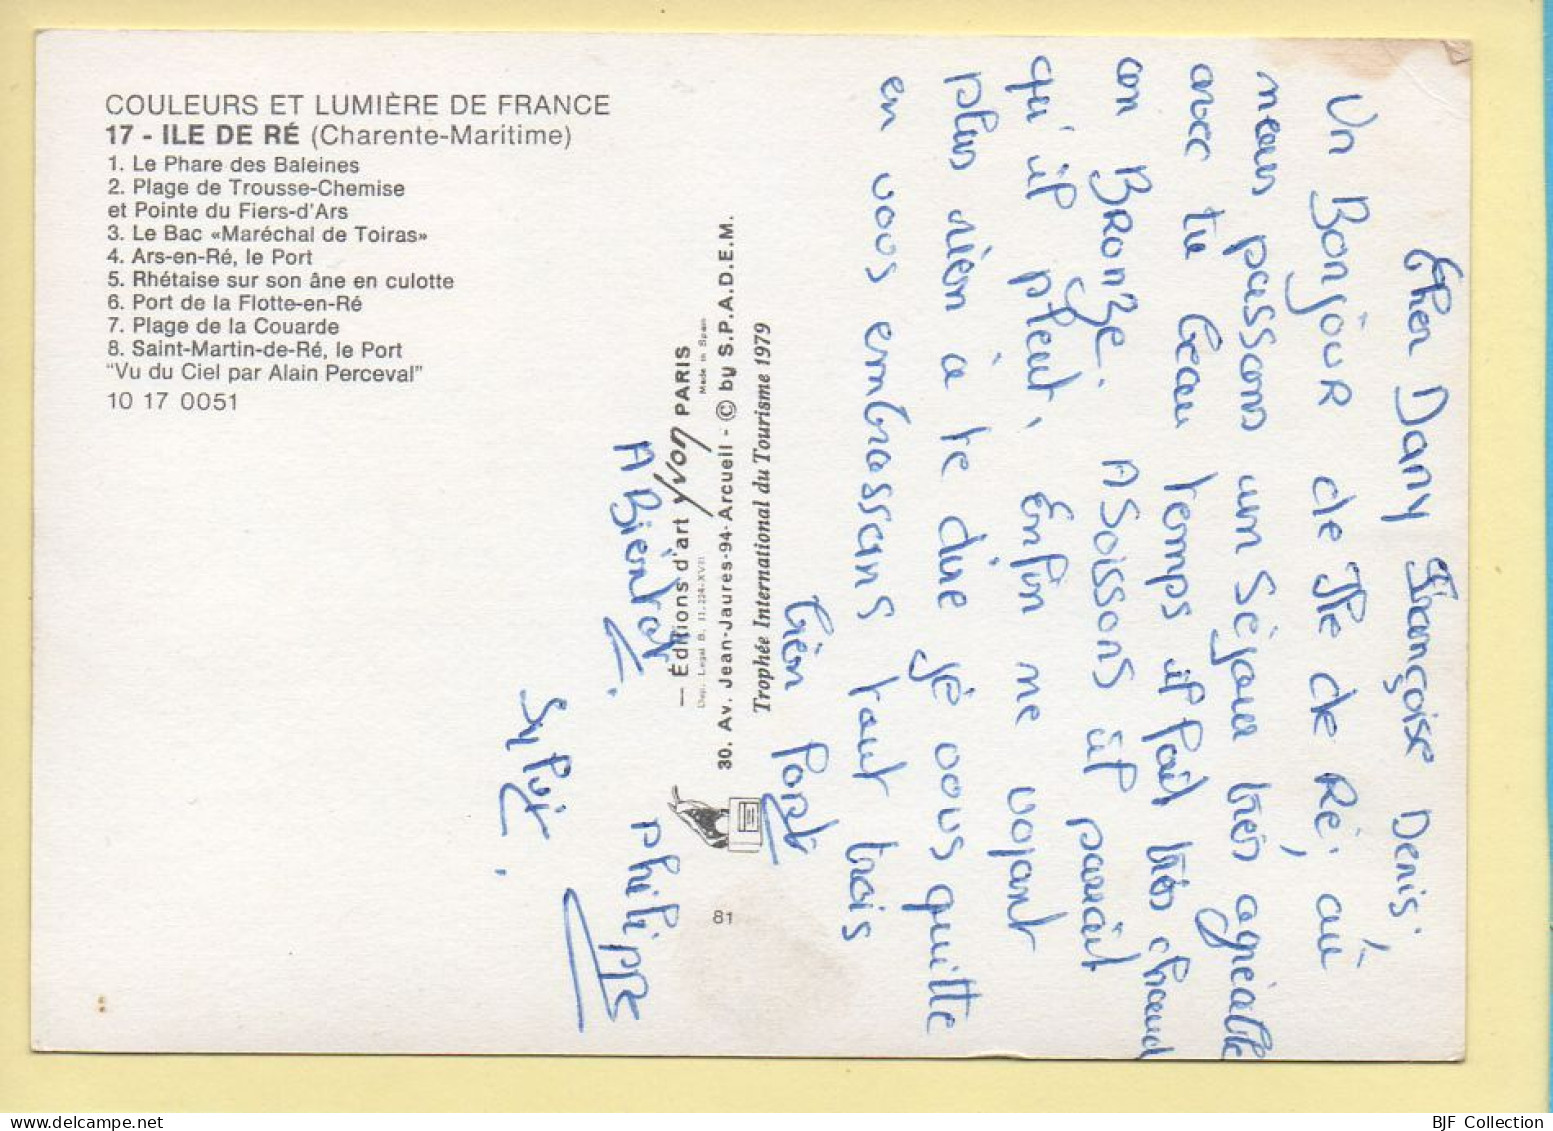 COULEURS ET LUMIÈRE DE FRANCE
17 - ILE DE RÉ (Charente-Maritime)
1. Le Phare des Baleines
2. Plage de Trousse-Chemise
et Pointe du Fiers-d'Ars
3. Le Bac «Maréchal de Toiras»
4. Ars-en-Ré, le Port
5. Rhétaise sur son âne en culotte
6. Port de la Flotte-en-Ré
7. Plage de la Couarde
8. Saint-Martin-de-Ré, le Port
"Vu du Ciel par Alain Perceval"
10 17 0051
— Éditions d'art Yvon PARIS
Dep. Legal B. 11.224-XVII
Made in Spain
30. Av. Jean-Jaures-94-Arcueil - © by S.P.A.D.E.M.
Trophée International du Tourisme 1979
81
Cher Dany Françoise Denis.
Un Bonjour de Ile de Ré, au
nous passons um Séjour très agréable
avec tu beau temps il fait très chaud
on BRONZE. ASoissons il parait
qu'il pleut, Enfin ne voyant
plus rien a te dire je vous quitte
en vous embrassans tout trois
bien fort
A Bientot.
Sylvie.
philippe
BJF Collection